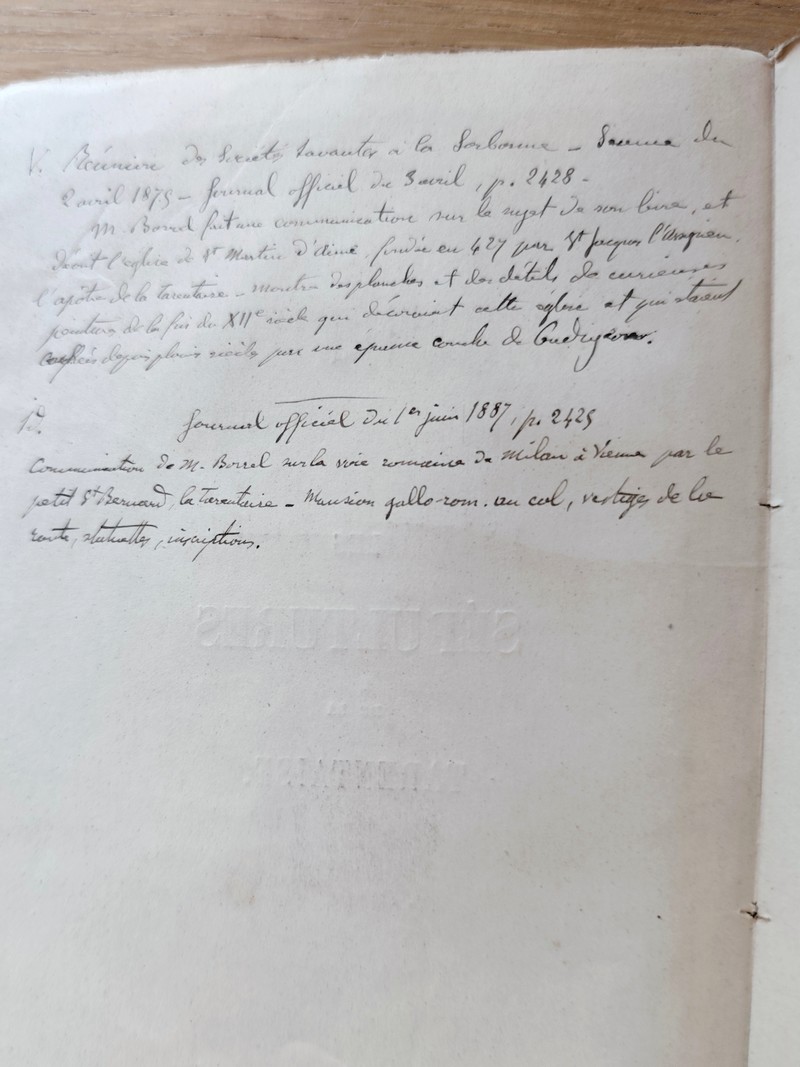 V. Réunion des Sociétés Savantes à la Sorbonne – Séance du
2 avril 1875 – Journal officiel du 3 avril, p. 2428 –
M. Borrel fait une communication sur le sujet de son livre, et
décrit l'église de St Martin d'Aime, fondée en 427 par St Jacques l'Assyrien,
l'apôtre de la tarentaise – montre des planches et des détails de curieuses
peintures de la fin du XIIe siècle qui décoraient cette église et qui étaient
depuis plusrs siècles par une épaisse couche de badigeon.
id. Journal officiel du 1er juin 1887, p. 2425
Communication de M. Borrel sur la voie romaine de Milan à Vienne par le
petit St Bernard, la tarentaise – Mansion gallo-rom. au col, vestiges de la
route, statuettes, inscriptions.
SÉPULTURES
TARENTAISE